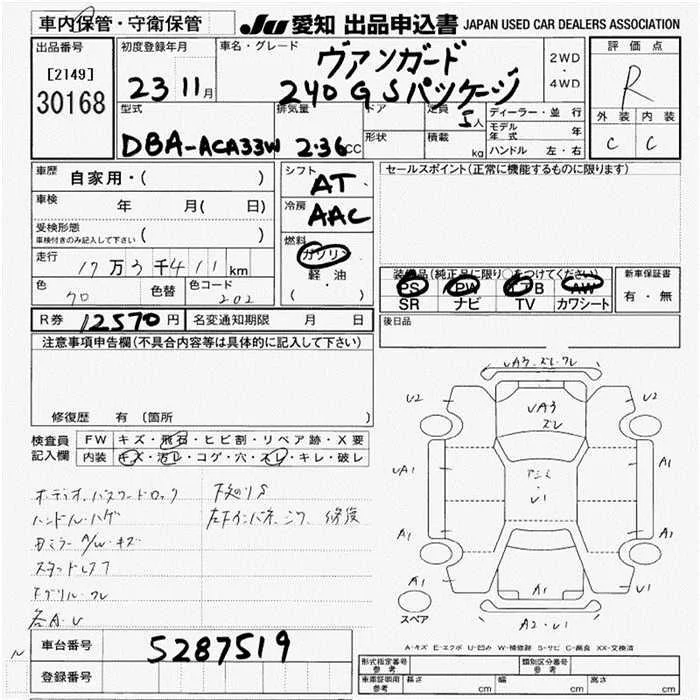 車内保管・守衛保管
JU 愛知 出品申込書 JAPAN USED CAR DEALERS ASSOCIATION
出品番号
[2149]
30168
初度登録年月
23 11月
車名・グレード
ヴァンガード
240 G Sパッケージ
2WD
・
4WD
評価点
R
外装 内装
C C
型式
DBA-ACA33W
排気量
2.36 CC
ドア
形状
定員
5人
積載
kg
ディーラー・並行
モデル年式 年
ハンドル 左・右
車歴
自家用・( )
車検
年 月( 日)
受検形態
車検付きのみ記入して下さい ( )
走行
17万3千411km
色
クロ
色替
色コード
202
シフト
AT
冷房
AAC
燃料
ガソリン
軽油
( ・ )
セールスポイント(正常に機能するものに限ります)
装備品(純正品に限り○をつけてください)
PS PW エアB AW
SR ナビ TV カワシート
新車保証書
有・無
R券 12570円 名変通知期限 月 日
後日品
注意事項申告欄(不具合内容等は具体的に記入して下さい)
修復歴 有 (箇所 )
検査員
記入欄
FW キズ・飛石・ヒビ割・リペア跡・X要
内装 キズ・汚レ・コゲ・穴・スレ・キレ・破レ
オーディオ、パスワードロック
ハンドル・ハゲ
A/W・キズ
スタッドレス
Fグリル・ワレ
各A・U
下廻りS
修復
UA3・ズレ・ワレ
UA3
ズレ
U2
U2
UA1
A1
U1
A1
A1
A1
U1
A1
A2・U1
スペア
A-キズ E-エクボ U-凹み W-補修跡 S-サビ C-腐食 XX-交換済
N
車台番号
5287519
登録番号
形式指定番号
参考
類別区分番号
参考
車庫証明用
参考
長さ cm
幅 cm
高さ cm